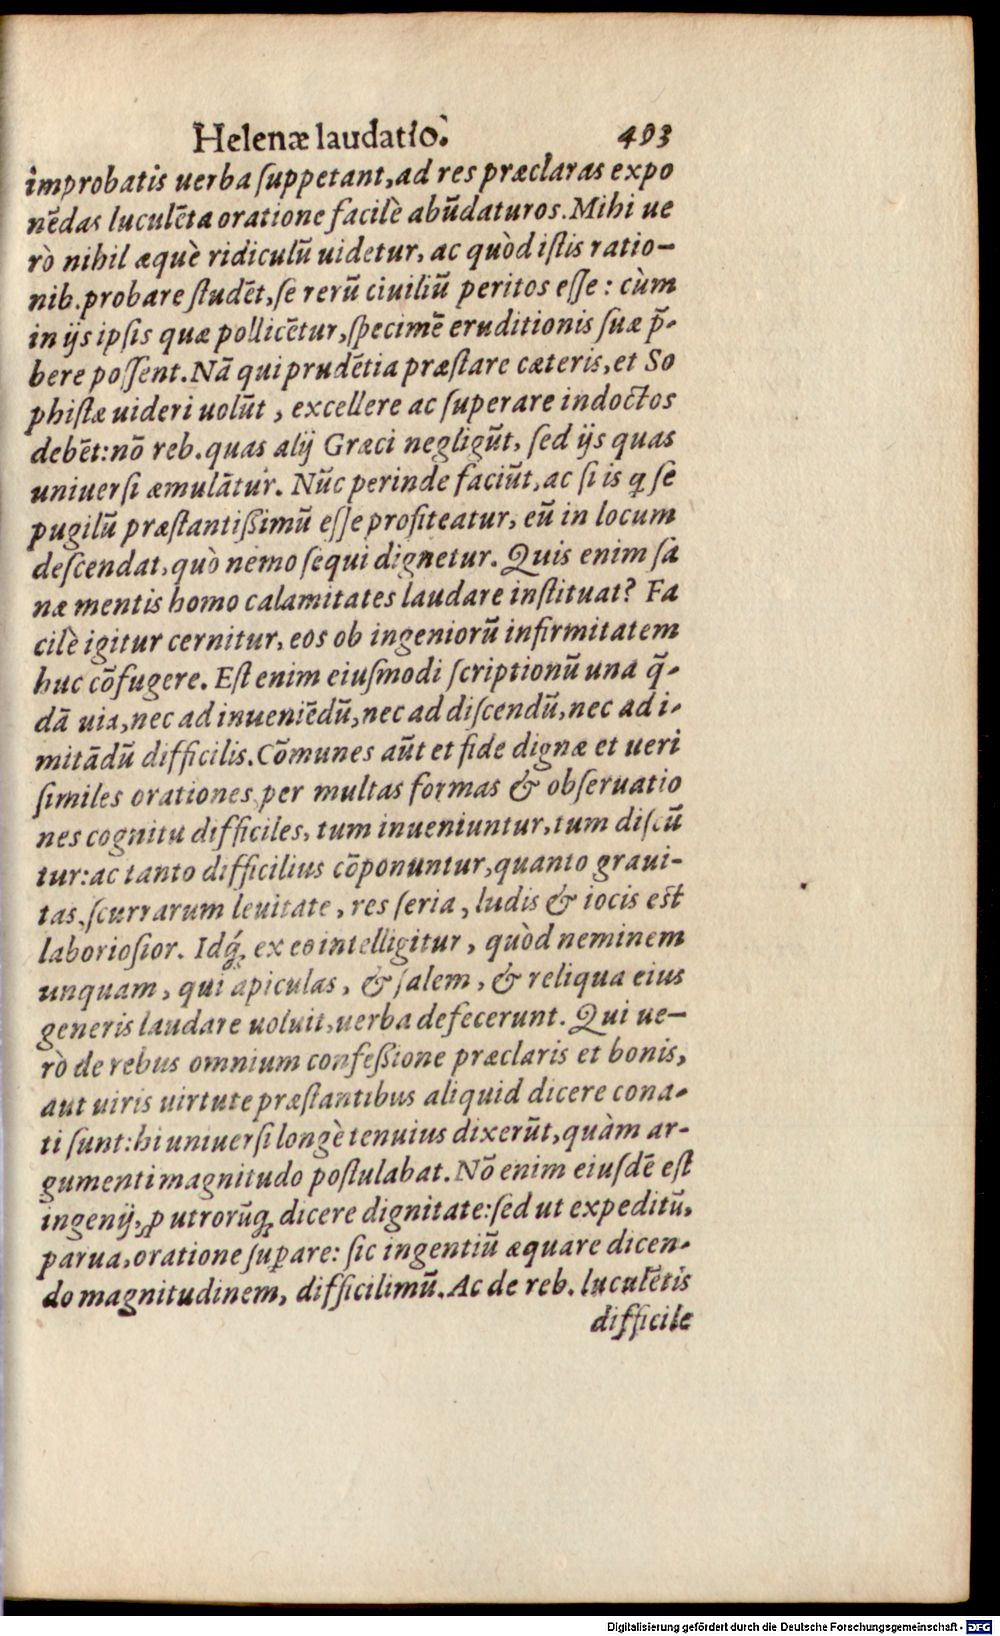 Helenæ laudatio. 493
improbatis uerba ſuppetant, ad res præclaras expo
nēdas luculēta oratione facilè abūdaturos. Mihi ue
rò nihil æquè ridiculū uidetur, ac quòd iſtis ratio-
nib. probare ſtudēt, ſe rerū ciuiliū peritos eſſe: cùm
in ijs ipſis quæ pollicētur, ſpecimē eruditionis ſuæ p̄-
bere poſſent. Nā qui prudētia præſtare cæteris, et So
phiſtæ uideri uolūt, excellere ac ſuperare indoctos
debēt: nō reb. quas alij Græci negligūt, ſed ijs quas
uniuerſi æmulātur. Nūc perinde faciūt, ac ſi is q ſe
pugilū præſtantißimū eſſe profiteatur, eū in locum
deſcendat, quò nemo ſequi dignetur. Quis enim ſa
næ mentis homo calamitates laudare inſtituat? Fa
cilè igitur cernitur, eos ob ingeniorū infirmitatem
huc cōfugere. Eſt enim eiuſmodi ſcriptionū una q̄-
dā uia, nec ad inueniēdū, nec ad diſcendū, nec ad i-
mitādū difficilis. Cōmunes aūt et fide dignæ et ueri
ſimiles orationes per multas formas & obſeruatio
nes cognitu difficiles, tum inueniuntur, tum diſcū
tur: ac tanto difficilius cōponuntur, quanto graui-
tas, ſcurrarum leuitate, res ſeria, ludis & iocis est
laborioſior. Idq́; ex eo intelligitur, quòd neminem
unquam, qui apiculas, & ſalem, & reliqua eius
generis laudare uoluit, uerba defecerunt. Qui ue-
rò de rebus omnium confeßione præclaris et bonis,
aut uiris uirtute præſtantibus aliquid dicere cona-
ti ſunt: hi uniuerſi longè tenuius dixerūt, quàm ar-
gumenti magnitudo poſtulabat. Nō enim eiuſdē eſt
ingenij, ꝓ utrorūq; dicere dignitate: ſed ut expeditū,
parua, oratione ſuꝑare: ſic ingentiū æquare dicen-
do magnitudinem, difficilimū. Ac de reb. luculētis
difficile
Digitalisierung gefördert durch die Deutsche Forschungsgemeinschaft - DFG